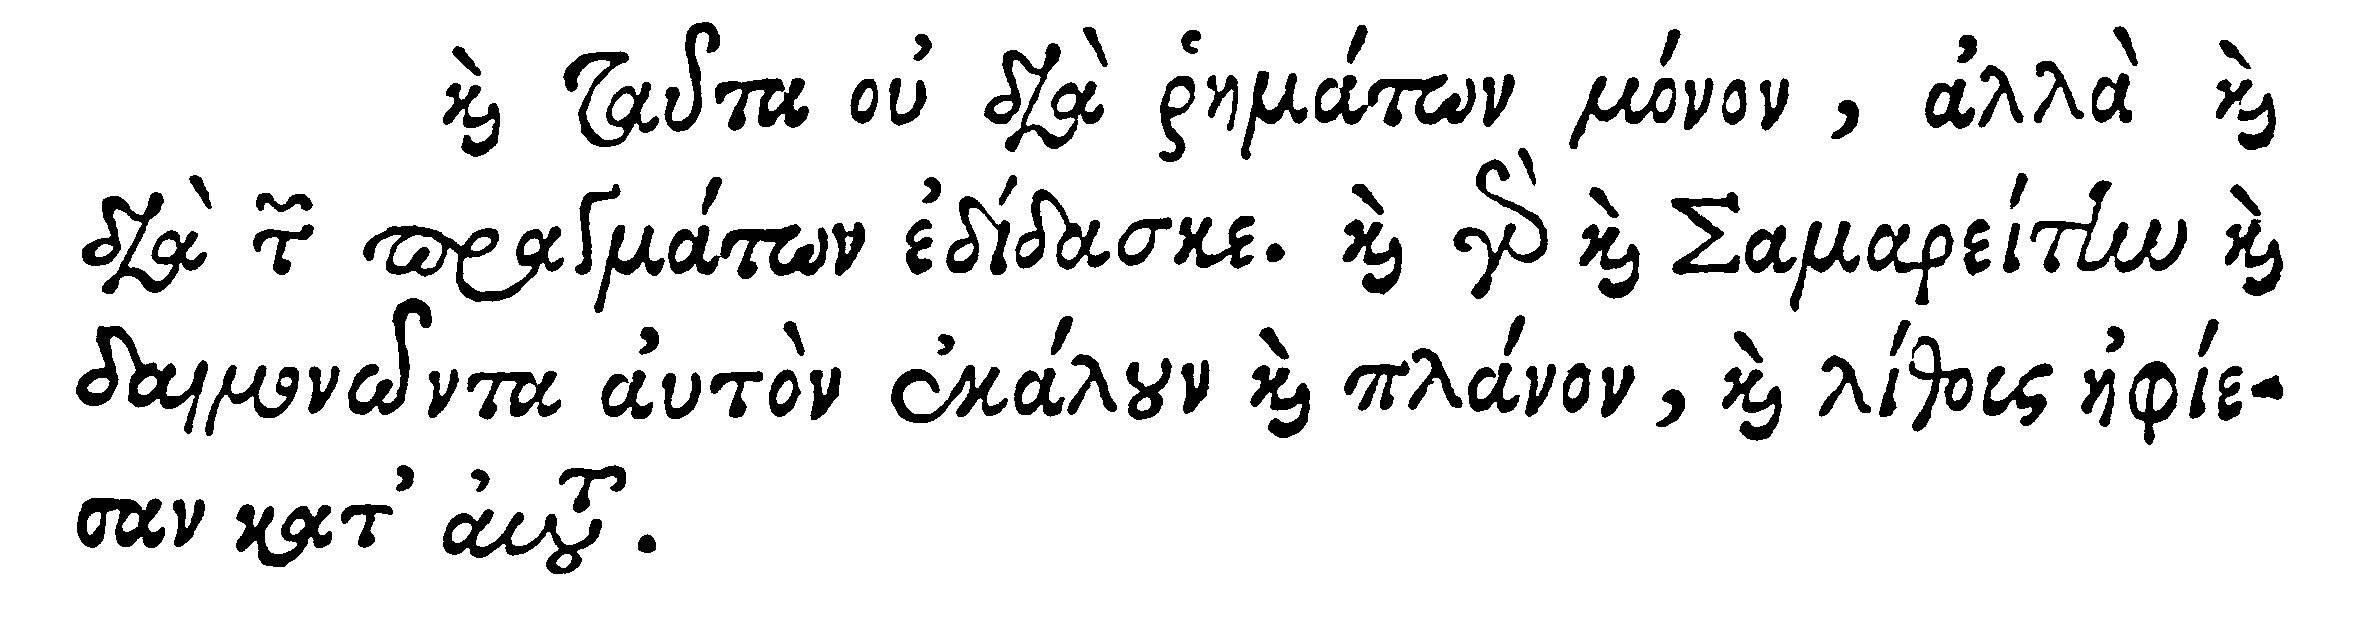 καὶ ταῦτα οὐ διὰ ῥημάτων μόνον, ἀλλὰ καὶ
διὰ τῶν πραγμάτων ἐδίδασκε. καὶ γὰρ καὶ Σαμαρείτην καὶ
δαιμονῶντα ἀυτὸν ἐκάλουν καὶ πλάνον, καὶ λίθοις ἠφίε-
σαν κατ' ἀυτοῦ.